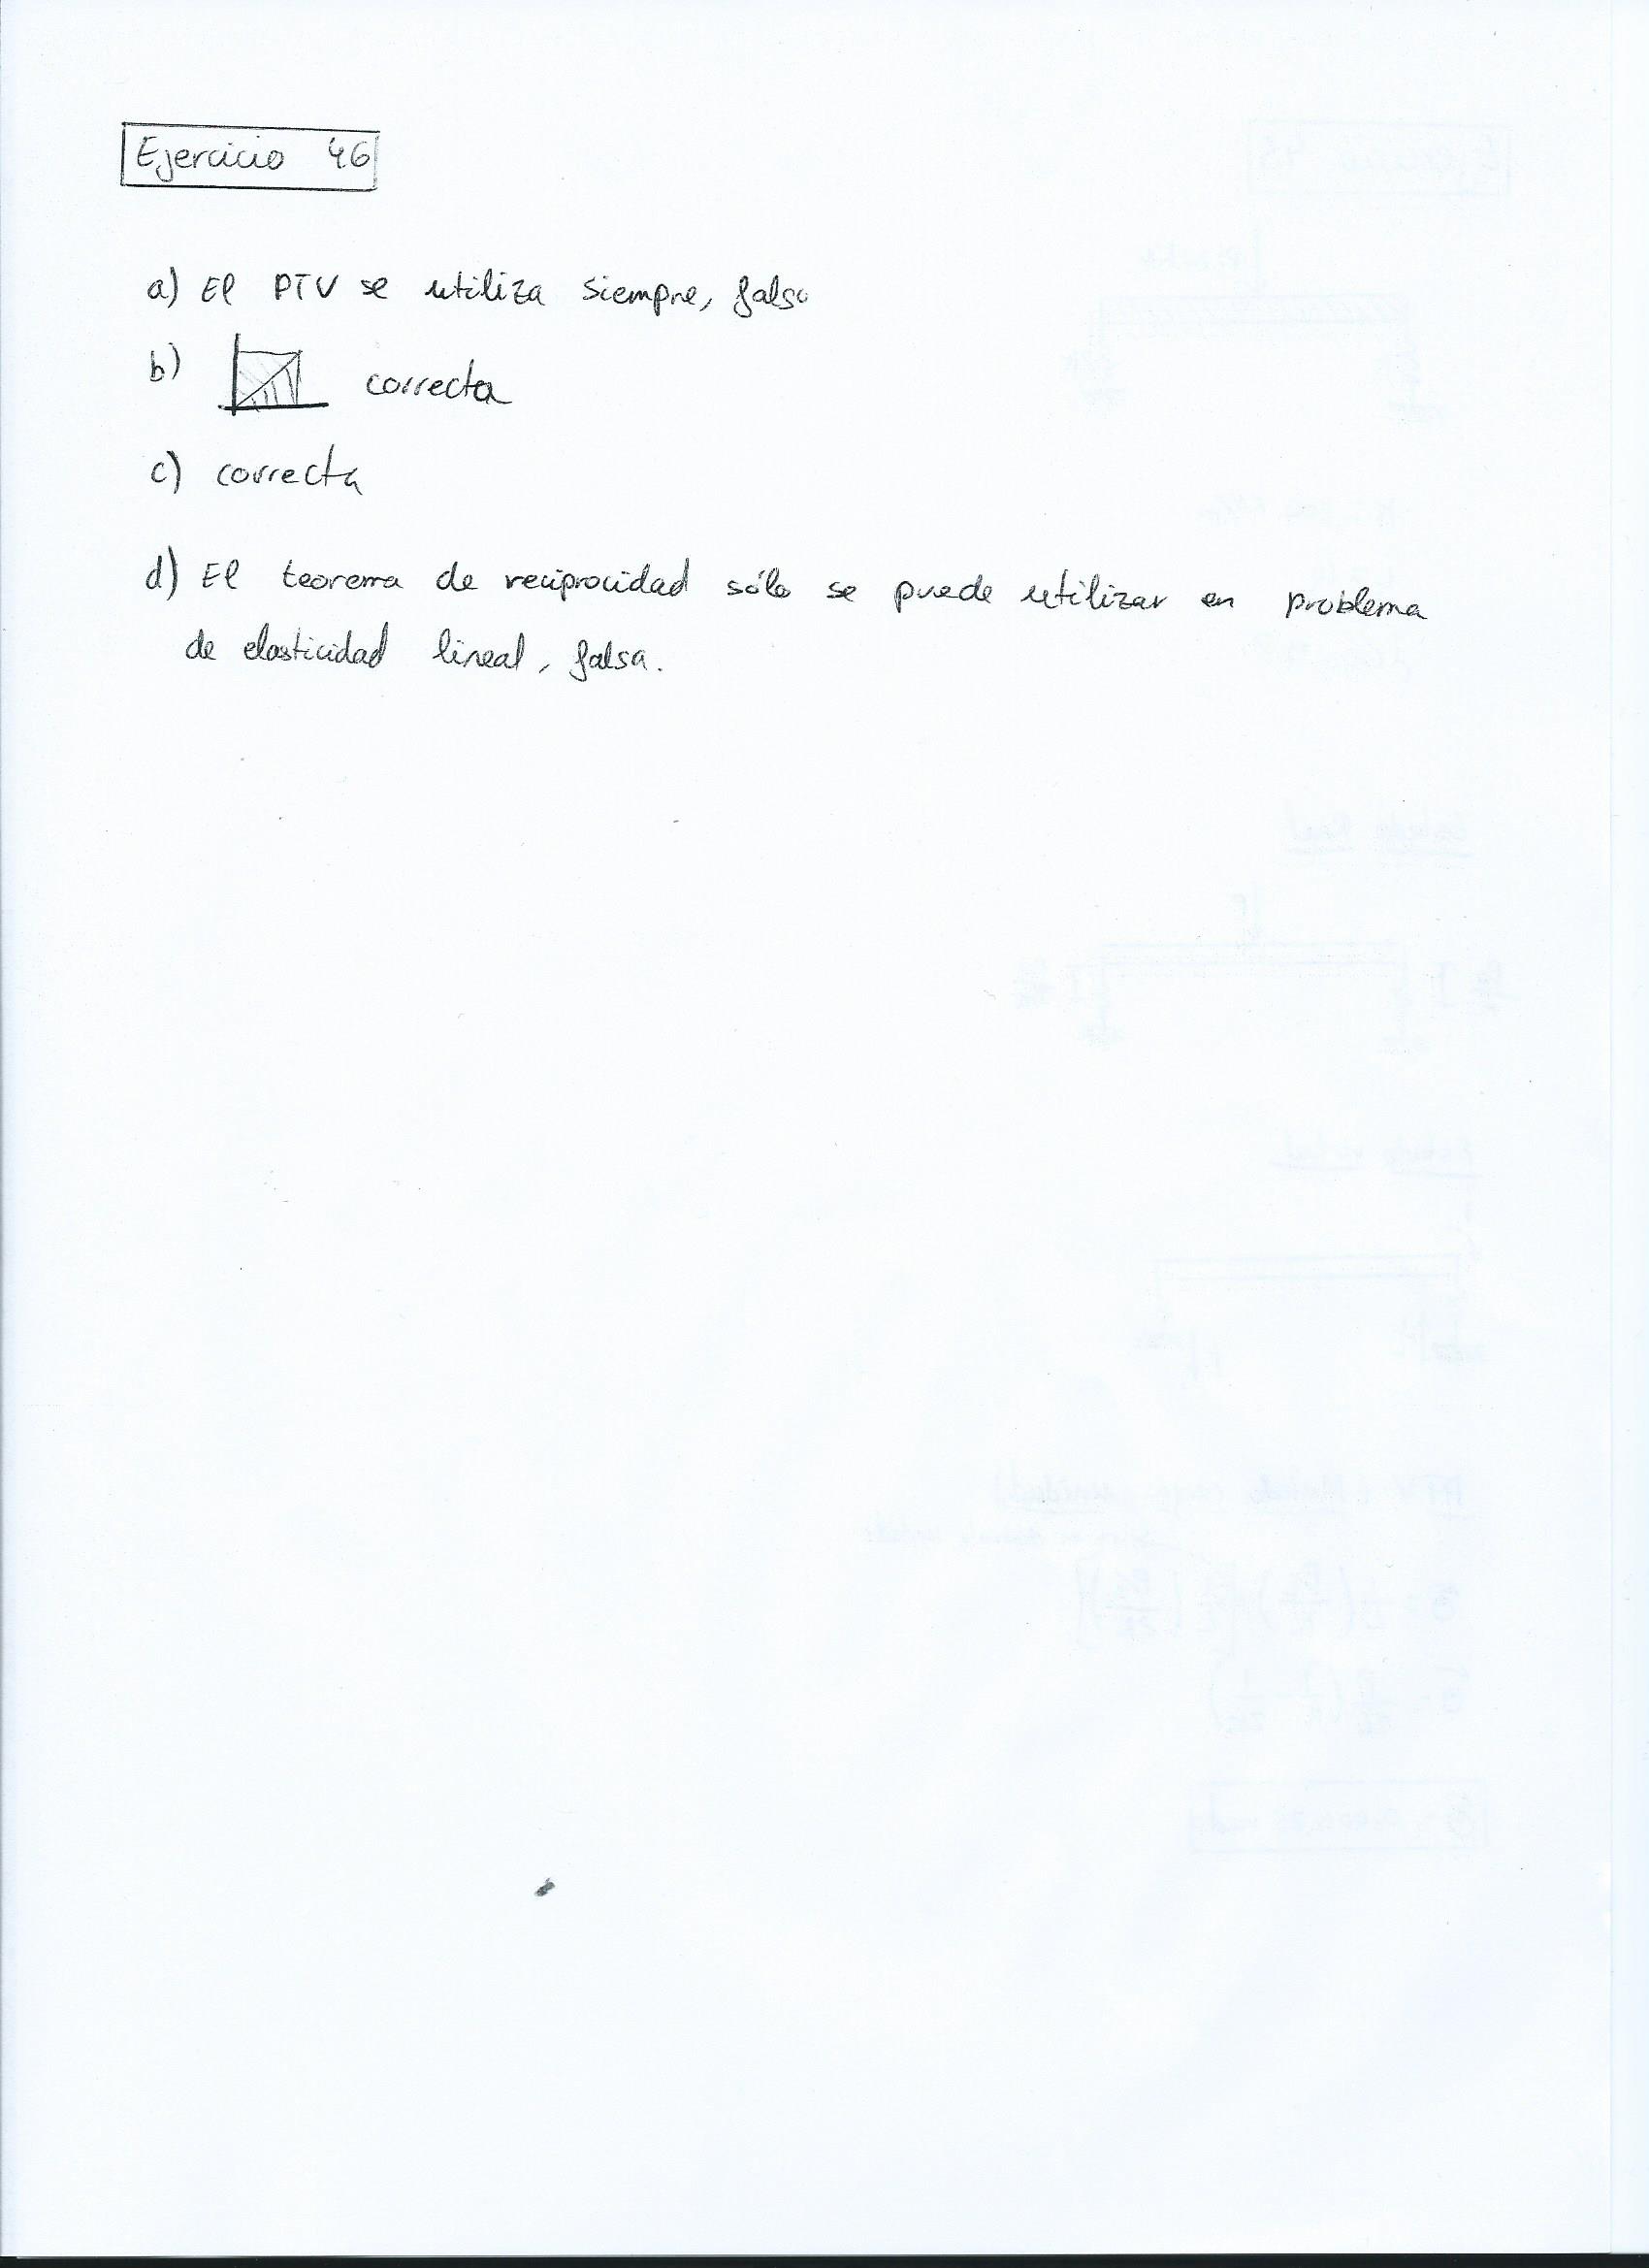 Ejercicio 46
a) El PTV se utiliza siempre, falso
b) correcta
c) correcta
d) El teorema de reciprocidad sólo se puede utilizar en problema
de elasticidad lineal, falsa.